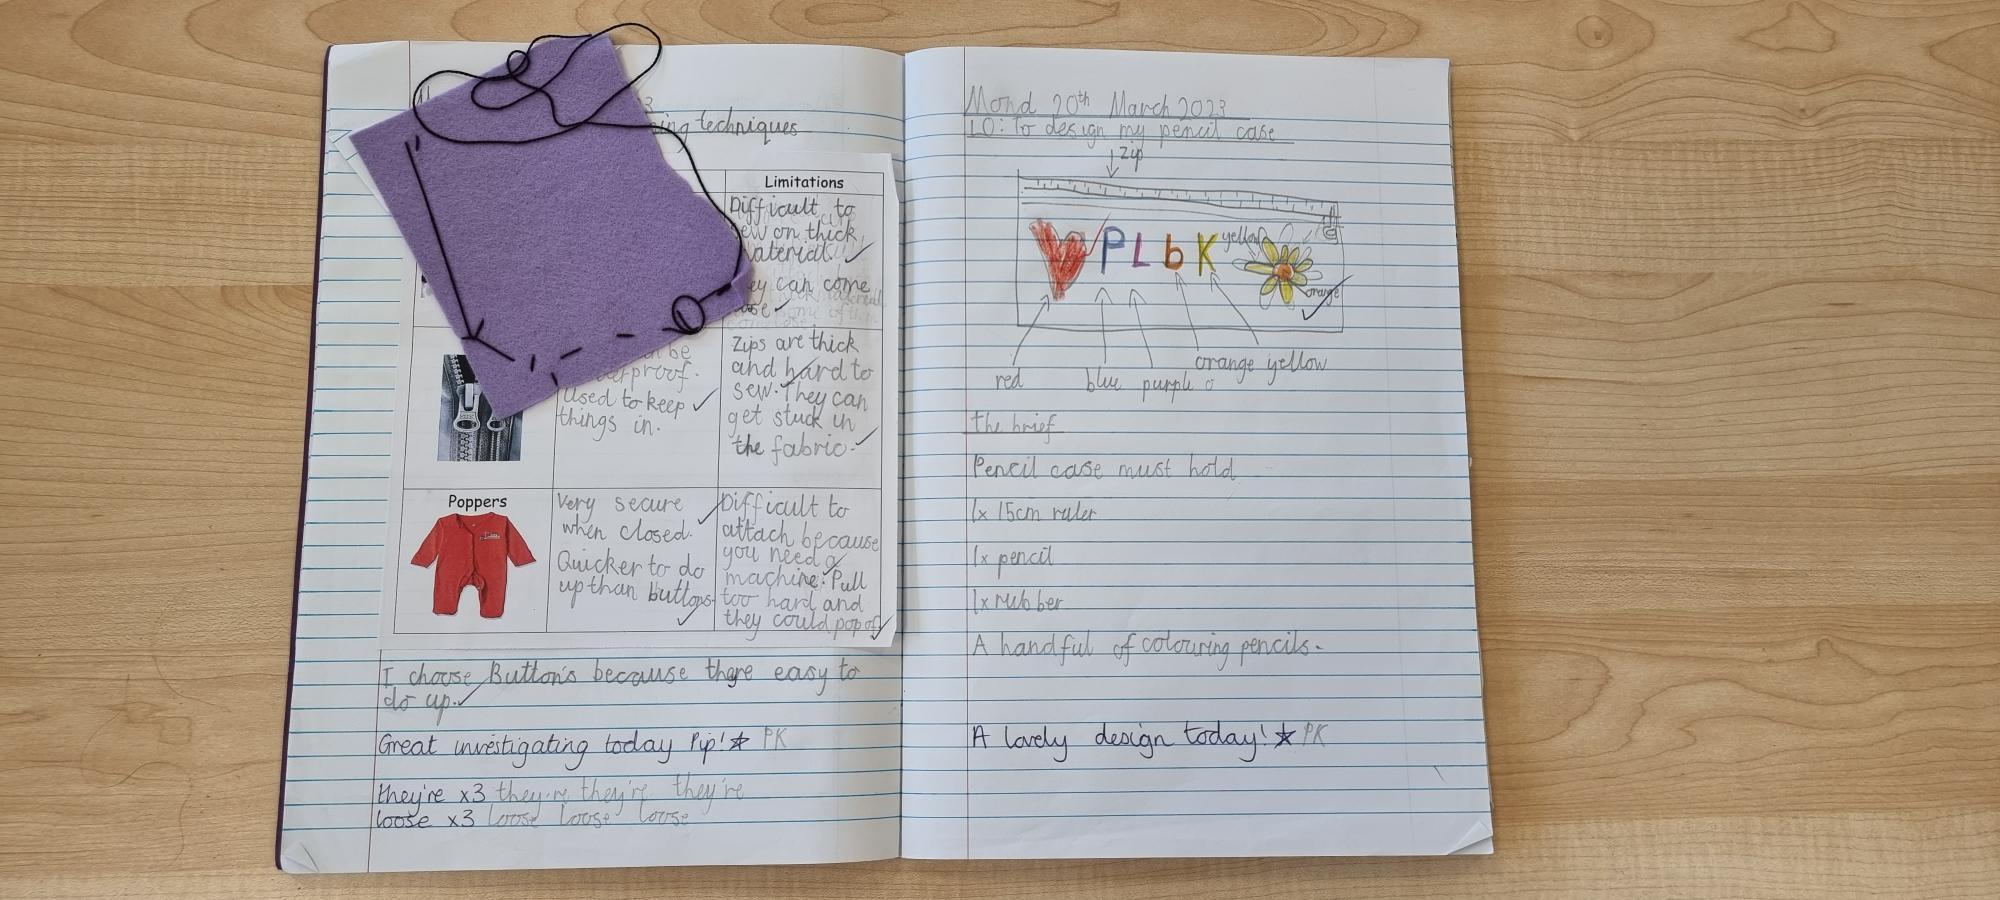 3
ing techniques
Limitations
Difficult to
sew on thick
material.
ey can come
loose
n be
erproof.
Used to keep
things in.
Zips are thick
and hard to
sew. They can
get stuck in
the fabric.
Poppers
Very secure
when closed.
Quicker to do
up than buttons.
Difficult to
attach because
you need a
machine. Pull
too hard and
they could pop off
I choose Button's because there easy to
do up.
Great investigating today Pip! ★ PK
they're x3 they're they're they're
loose x3 loose loose loose
Mond 20th March 2023
LO: To design my pencil case
zip
P L b K
yellow
orange
orange yellow
red blue purple o
the brief
Pencil case must hold
1x 15cm ruler
1x pencil
1x rubber
A handful of colouring pencils.
A lovely design today! ★ PK